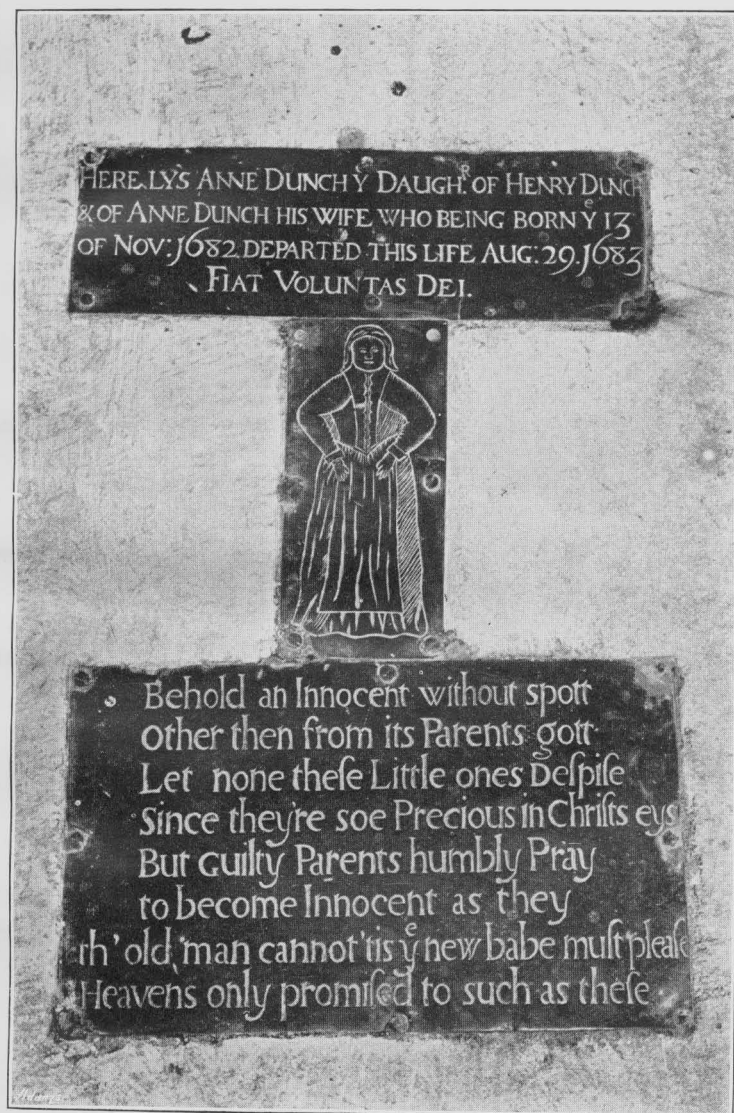 HERE.LYS ANNE DUNCH Y DAUGHR. OF HENRY DUNCH
& OF ANNE DUNCH HIS WIFE WHO BEING BORN Ye 13
OF NOV: 1682 DEPARTED THIS LIFE AUG: 29. 1683
FIAT VOLUNTAS DEI.
Behold an Innocent without spott
Other then from its Parents gott
Let none theſe Little ones Deſpiſe
Since they're soe Precious in Chriſts eys
But Guilty Parents humbly Pray
to become Innocent as they
th' old man cannot 'tis ye new babe muſt pleaſe
Heavens only promiſed to such as theſe